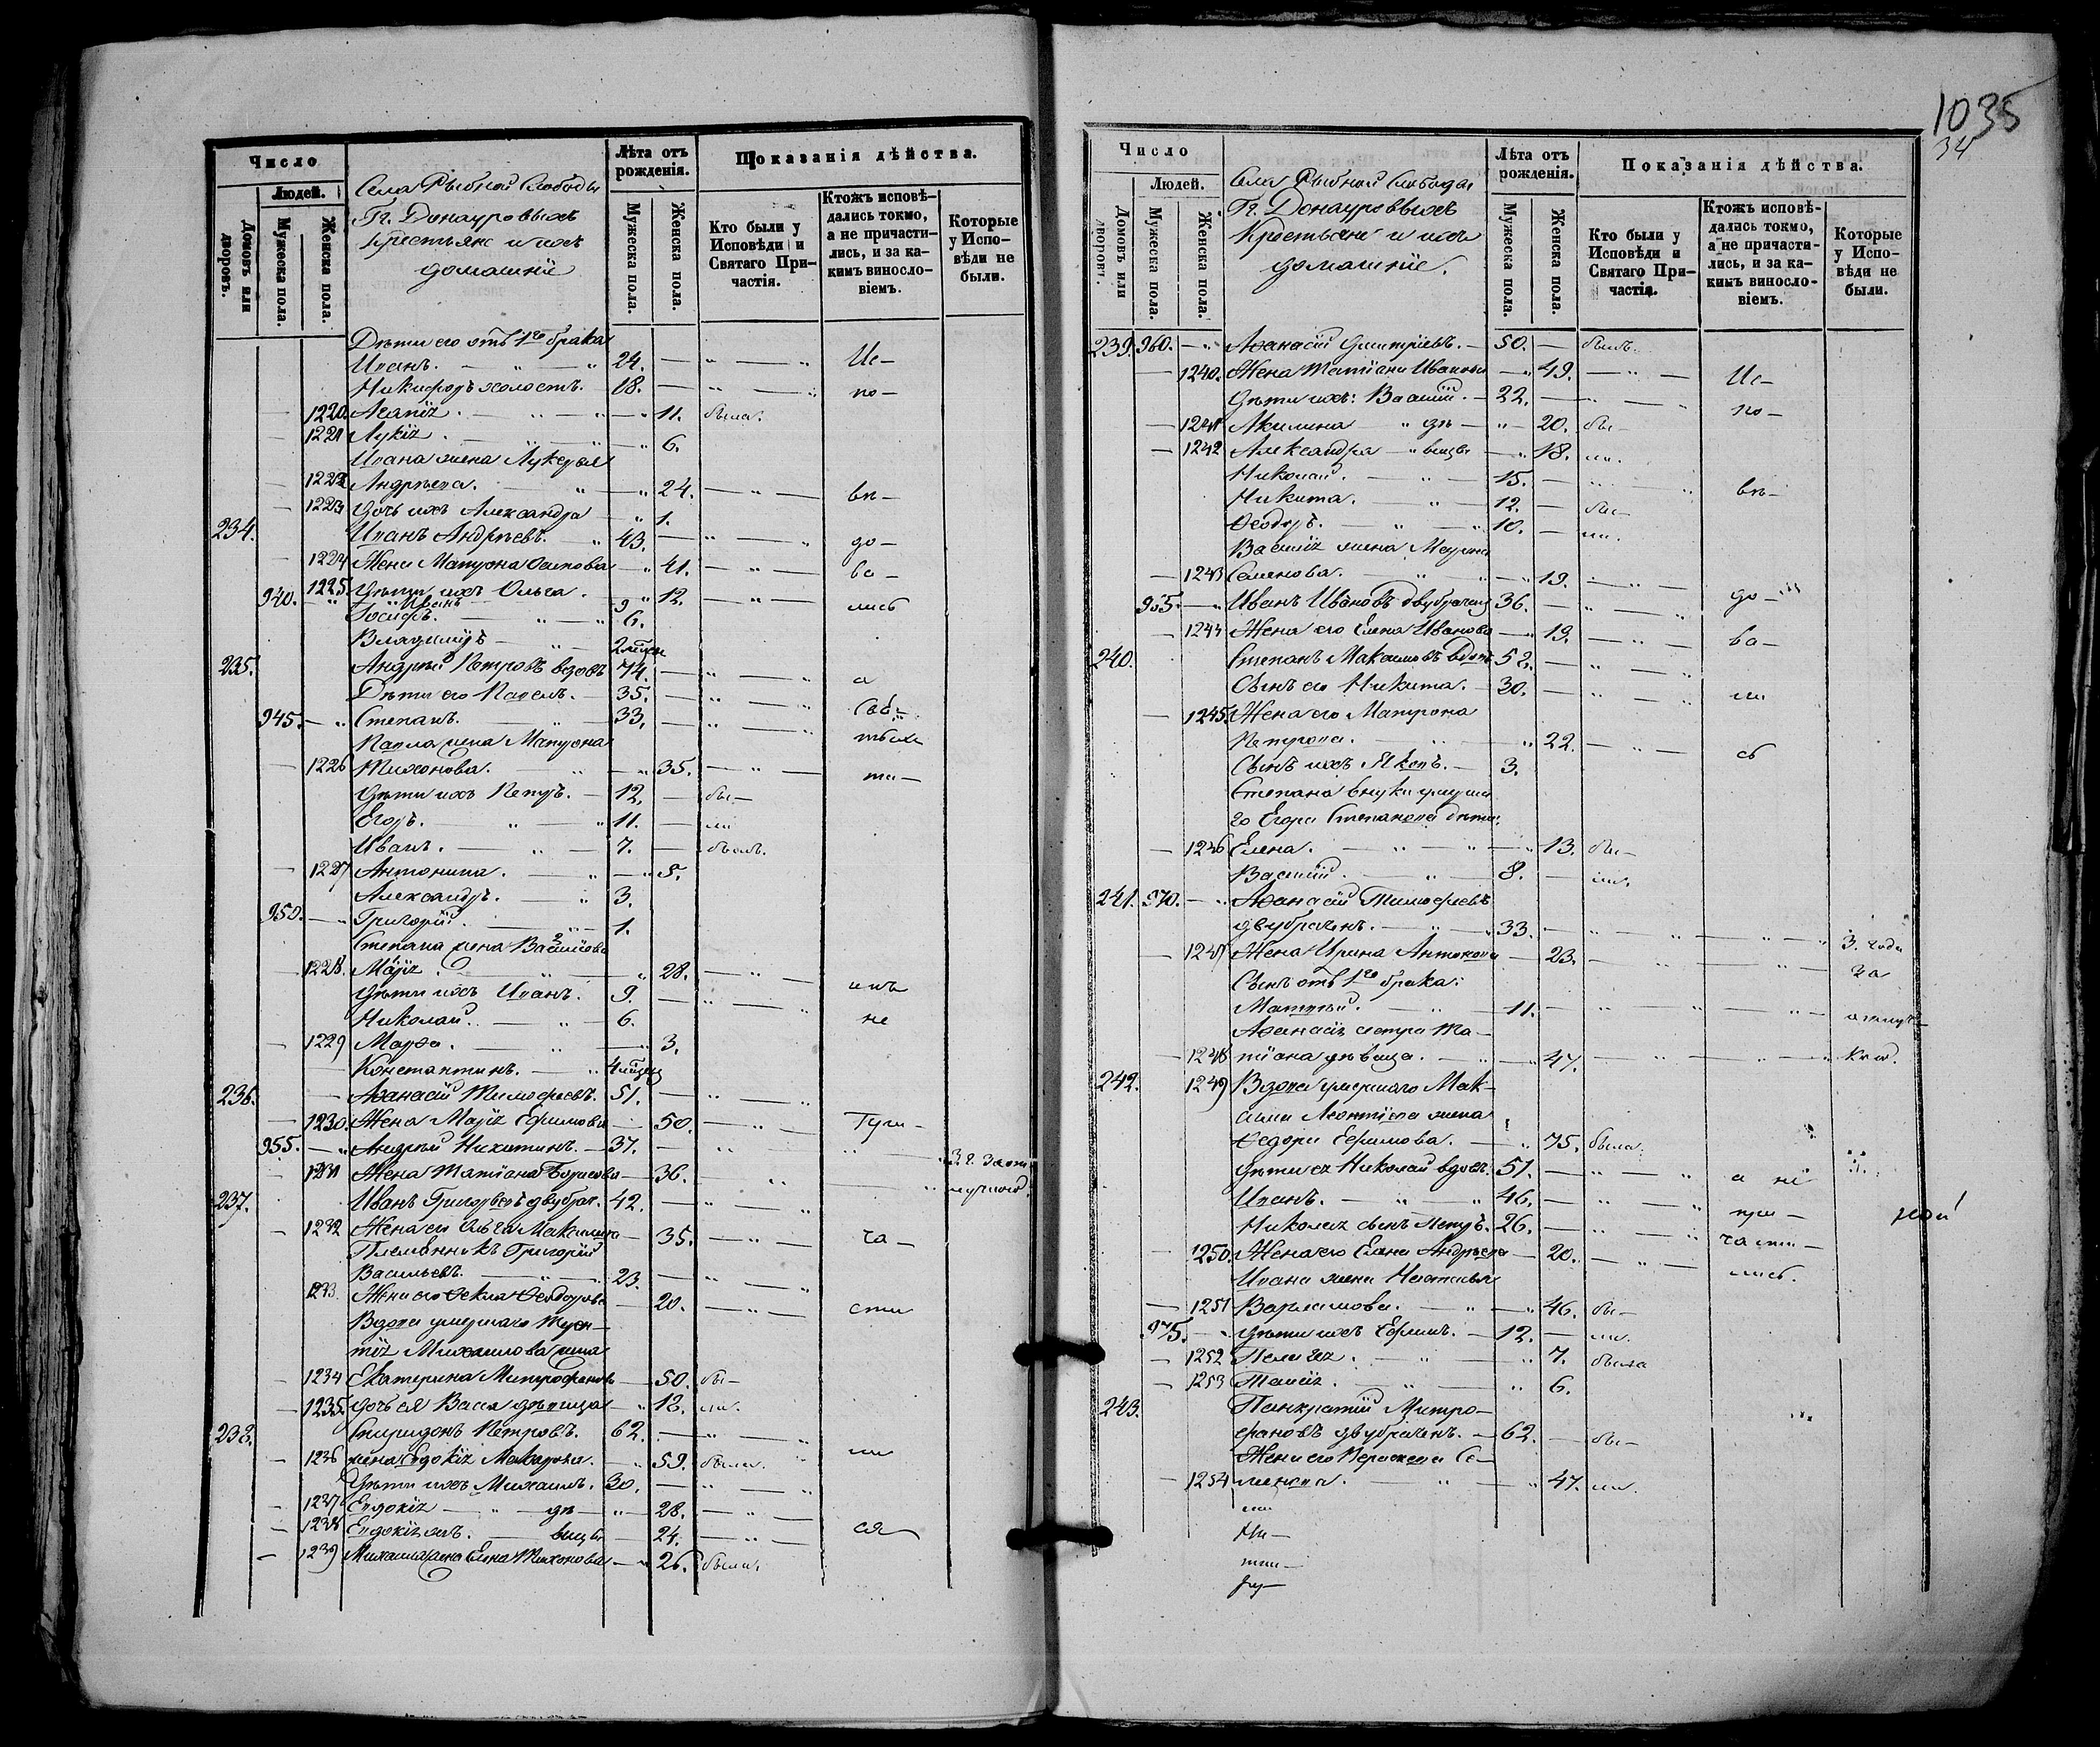 Число
Людей.
Домовъ или дворовъ.
Мужеска пола.
Женска пола.
Села Рыбной Слободы
Гг. Донауровыхъ
Крестьяне и ихъ
домашніе
Лѣта отъ рожденія.
Мужеска пола.
Женска пола.
Показанія дѣйства.
Кто были у Исповѣди и Святаго Причастія.
Ктожъ исповѣдались токмо, а не причастились, и за какимъ винословіемъ.
Которые у Исповѣди не были.
Дѣти его отъ 1го брака
Иванъ. 24. Ис-
Никифоръ холостъ. 18. по-
1220 Агапія. 11. была.
1221 Лукія. 6.
Ивана жена Лукерья
1222 Андреева. 24. вѣ-
1223 Дочь ихъ Александра 1.
234. Иванъ Андреевъ. 43. до-
1224 Жена Матрона Осипова 41. ва-
1225. Дѣти ихъ Ольга. 12. лись
940. Иванъ 9
Іосифъ. 6.
Владиміръ 2
235. Андрей Петровъ вдовъ 74. а
Дѣти его Павелъ. 35.
945. Степанъ. 33.
Павла жена Матрона
1226 Тихонова. 35.
Дѣти ихъ Петръ. 12. бы-
Егоръ. 11. ли
Иванъ. 7. былъ.
1227 Антонина. 5.
Александръ. 3.
950. Григорій. 1.
Степана жена Василіова
1228. Марія. 28.
Дѣти ихъ Иванъ. 9.
Николай. 6. не
1229 Марѳа. 3.
Константинъ. 4
236. Аѳанасій Тимофеевъ. 51.
1230. Жена Марія Ефимова 50. При-
955. Андрей Никитинъ. 37.
1231 Жена Татіана Борисова 36.
237. Иванъ Григорьевъ двубрач. 42.
1232 Жена его Ольга Максимова 35. ча-
Племянникъ Григорій
Васильевъ. 23.
1233. Жена его Ѳекла Ѳеодорова 20. сти
Вдова умершаго Терен-
тія Михайлова жена
1234 Екатерина Митрофанова 50. бы-
1235. дочь ея Васса дѣвица 18. ли.
238. Спиридонъ Петровъ. 62. ли
1236 жена Евдокія Макарова. 59. была.
Дѣти ихъ Михаилъ. 30.
1237 Евдокія дѣ 28.
1238 Евдокія жъ. вицы 24. ся
1239 Михаила жена Елена Тихонова 26. была.
1035
34
Число
Людей.
Домовъ или дворовъ.
Мужеска пола.
Женска пола.
Села Рыбной Слободы
Гг. Донауровыхъ
Крестьяне и ихъ
домашніе.
Лѣта отъ рожденія.
Мужеска пола.
Женска пола.
Показанія дѣйства.
Кто были у Исповѣди и Святаго Причастія.
Ктожъ исповѣдались токмо, а не причастились, и за какимъ винословіемъ.
Которые у Исповѣди не были.
239. 960. Аѳанасій Дмитріевъ. 50. былъ.
1240. Жена Татіана Иванова 49. Ис-
Дѣти ихъ: Василій. 22. по-
1241 Акилина дѣ 20. бы-
1242 Александра вицы 18. ли.
Николай. 15. вѣ-
Никита. 12. бы-
Ѳеодоръ. 10. ли.
Василія жена Марина
1243 Семенова. 19. до-
965. Иванъ Ивановъ двубрачен 36.
1244 Жена его Елена Иванова 19. ва-
240. Степанъ Максимовъ вдовъ 52.
Сынъ его Никита. 30. ли
1245. Жена его Матрона
Петрова. 22. сь
Сынъ ихъ Яковъ. 3.
Степана внуки умерша-
го Егора Степанова дѣти:
1246 Елена. 13. бы-
Василій. 8. ли.
241. 970. Аѳанасій Тимофеевъ
двубраченъ. 33. 3. года
1247 Жена Ирина Антонова 23. за
Сынъ отъ 1го брака:
Матвей. 11. отлуч-
Аѳанасія сестра Та-
1248 тіана дѣвица. 47. кою.
242. 1249 Вдова умершаго Мак-
сима Леонтіева жена
Ѳедора Ефимова. 75. была.
Дѣти ея Николай вдовъ. 51. а не
Иванъ. 46. при-
Николая сынъ Петръ. 26. части-
1250. Жена его Елена Андреева 20. лись.
Ивана жена Настасья
1251 Варламова. 46. бы-
975. Дѣти ихъ Ефимъ. 12. ли.
1252 Пелагея. 7. была
1253 Таисія. 6.
243. Панкратій Митро-
фановъ двубраченъ. 62. бы-
Жена его Параскева Се-
1254 менова. 47. ли.